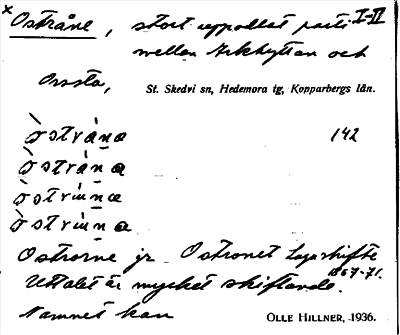 × Ostråne, stort uppodlat parti I-II
mellan Arkhyttan och
Orsta, St. Skedvi sn, Hedemora tg, Kopparbergs län.
òstràna 142
òstràna
òstrùna
òstrùna
Ostrorne jr Ostronet Lagaskifte
1867-71.
Uttalet är mycket skiftande.
Namnet kan OLLE HILLNER, 1936.